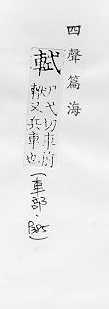 四聲篇海
軾
尸弋切車前
軾又兵車也
(車部·P.385)